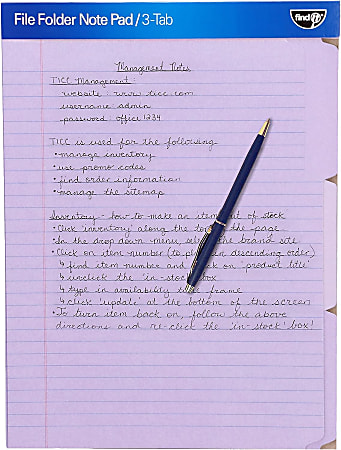 File Folder Note Pad/3-Tab
find It
Management Notes
TICC Management:
website: www.ticc.com
username: admin
password: office1234
TICC is used for the following
• manage inventory
• use promo codes
• find order information
• manage the sitemap
Inventory - how to make an item out of stock
• Click 'inventory' along the top of the page
• In the drop down menu, select the brand site
• Click on item number (to place in descending order)
↳ find item number and click on 'product title'
↳ unclick the 'in-stock' box
↳ type in availability time frame
↳ click 'update' at the bottom of the screen
• To turn item back on, follow the above
directions and re-click the 'in-stock' box!